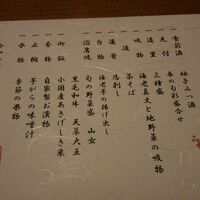 一食前酒 柚子みつ酒
一先付 春の旬彩盛合せ
一造里 三種盛
一吸物 海老真丈と地野菜の吸物
一凌 茶そば
一進肴 馬刺し
一台物 海老芋の揚げ出し
旬の野菜盛 山女
一溶岩焼 黒毛和牛 天草大王
一御飯 小国産あきげしき米
一香物 自家製お漬物
一止椀 芋がらの味噌汁
一水物 季節の果物